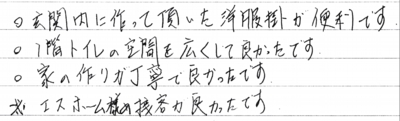 ○ 玄関内に作って頂いた洋服掛が便利です
○ 1階トイレの空間を広くして良かったです
○ 家の作りが丁寧で良かったです
※ エスホーム様の接客力良かったです